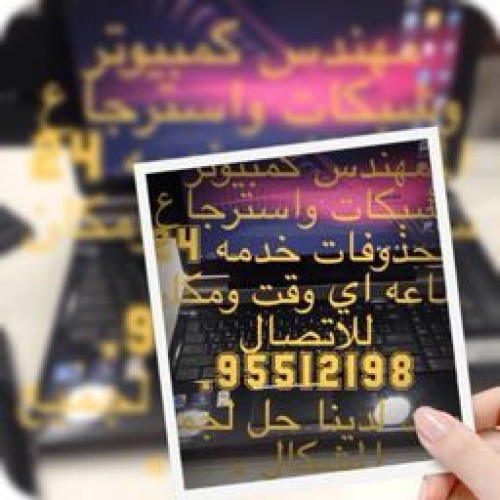 مهندس كمبيوتر
وشبكات واسترجاع
24
مهندس كمبيوتر
شبكات واسترجاع
حذوفات خدمه 24
اعه اي وقت ومكا
للاتصال
95512198.
لدينا حل لجم